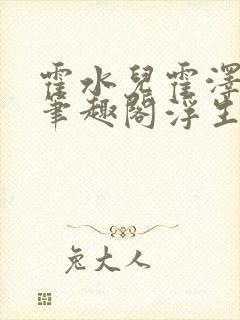 霍水兒霍澤
筆趣閣浮生
兔大人